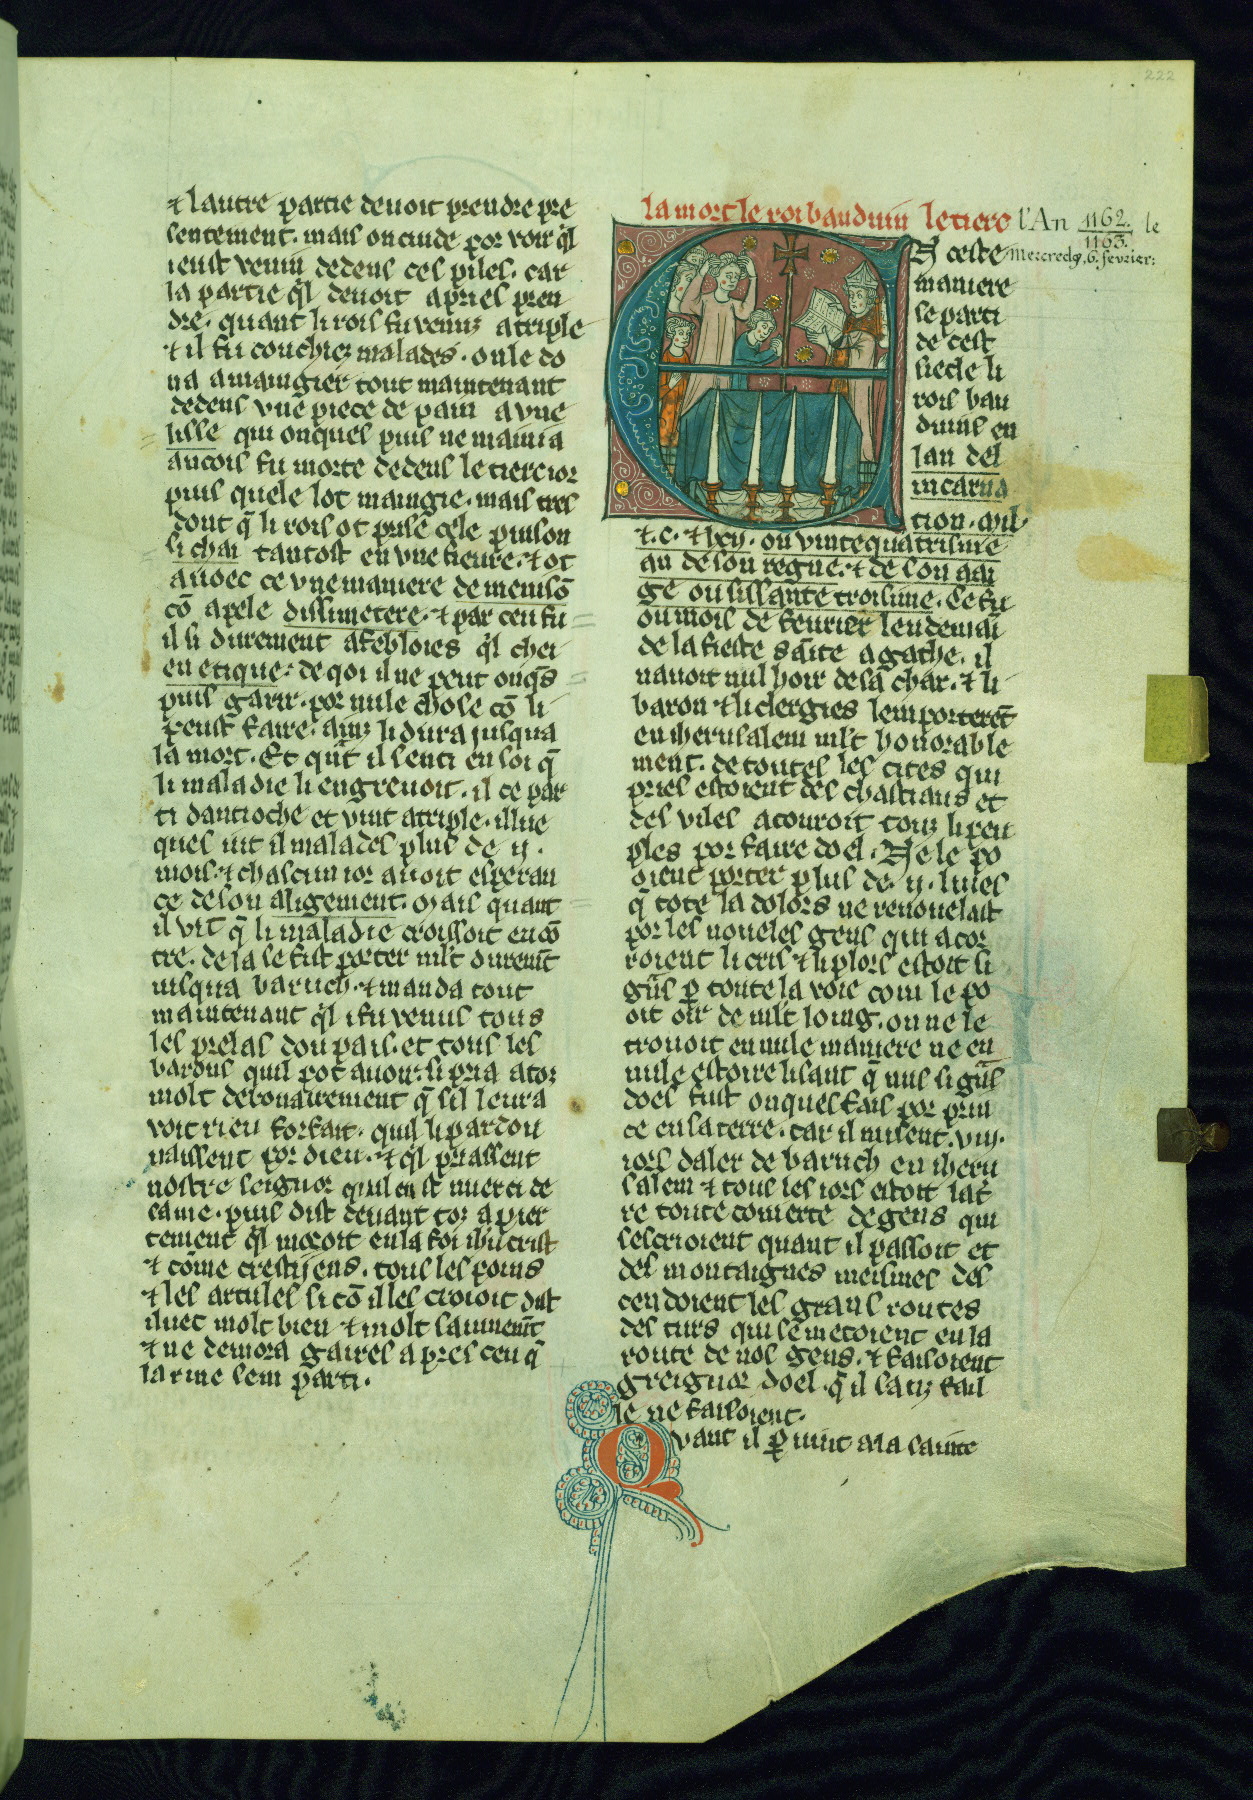 222
⁊ lautre partie deuoit prendre pre
sentement. mais on cuide por voir q̓l
i eust venin dedens ces piles. car
la partie q̓l deuoit apries pren
dre. quant li rois fu venuz a triple
⁊ il fu couchiez malades. on le do
na a maingier tout maintenant
dedens vne piece de pain a vne
lisse qui onques puis ne mainia
ancois fu morte dedens le tierc ior
puis quele lot maingie. mais tres
dont q̄ li rois ot prise cele puison
si chai tantost en vne fieure. ⁊ ot
auoec ce vne maniere de menisō
cō apele dissimetere. ⁊ par ceu fu
il si durement afebloies q̓l chei
en etique. de qoi il ne peut onq̄s
puis garir. por nule chose cō li
peust faire. ainz li dura iusqua
la mort. Et qūt il senti en soi q̄
li maladie li engreuoit. il ce par
ti dantioche et vint a triple. illue
ques iut il malades plus de .ij.
mois. ⁊ chascun ior auoit esperan
ce de son aligement. Mais quant
il vit q̄ li maladie croissoit en cō
tre. de la se fist porter ml̄t durem̄t
iusqua baruch. ⁊ manda tout
maintenant q̓l i fu venus tous
les prelas dou pais. et tous les
barons quil pot auoir. si pria a toz
molt debonairement q̄ sil leur a
voit rien forfait. quil li pardon
naissent por dieu. ⁊ q̓l priassent
nostre seignor quil eust merci de
same. puis dist deuant toz apier
tement q̓l moroit en la foi ih̄u crist
⁊ cōme crestijens. tous les poins
⁊ les articles si cō il les croioit dist
iluec molt bien ⁊ molt sainnem̄t
⁊ ne demora gaires apres ceu q̄
larme sem parti.
la mort le roi bauduin le tiers
l'An 1162. le
1163.
Mercredy, 6. fevrier:
En ceste
maniere
se parti
de cest
siecle li
rois bau
duins en
lan del
incarna
tion. mil
⁊ .c. ⁊ lxij. ou vintequatrisme
an de son regne. ⁊ de son aai
ge ou sissante troisime. Ce fu
ou mois de feurier lendemai
de la fieste sāite agathe. il
nauoit nul hoir de sa char. ⁊ li
baron ⁊ li clergies lemporterēt
en iherusalem ml̄t honorable
ment. de toutes les cites qui
pries estoient des chastiaus et
des viles acouroit touz li peu
ples por faire doel. Ne le po
oient porter plus de .ij. liues
q̄ tote la dolors ne renouelast
por les noueles gens qui acor
roient li cris ⁊ li plors estoit si
gn̄s ꝑ toute la voie com le po
oit oir de ml̄t loing. on ne le
trouoit en nule maniere ne en
nule estoire lisant q̄ nus si gn̄s
doel fust onques fais por prin
ce en sa terre. car il misent .viij.
iors daler de baruch en iheru
salem ⁊ tous les iors estoit lat̄
re toute couuerte de gens qui
sescrioient quant il passoit et
des montaignes meismes des
cendoient les grans routes
des turs qui se metoient en la
route de nos gens. ⁊ faisoient
greignor doel. q̄ il samz fail
le ne faisoient.
Quant il ꝑuint a la sainte